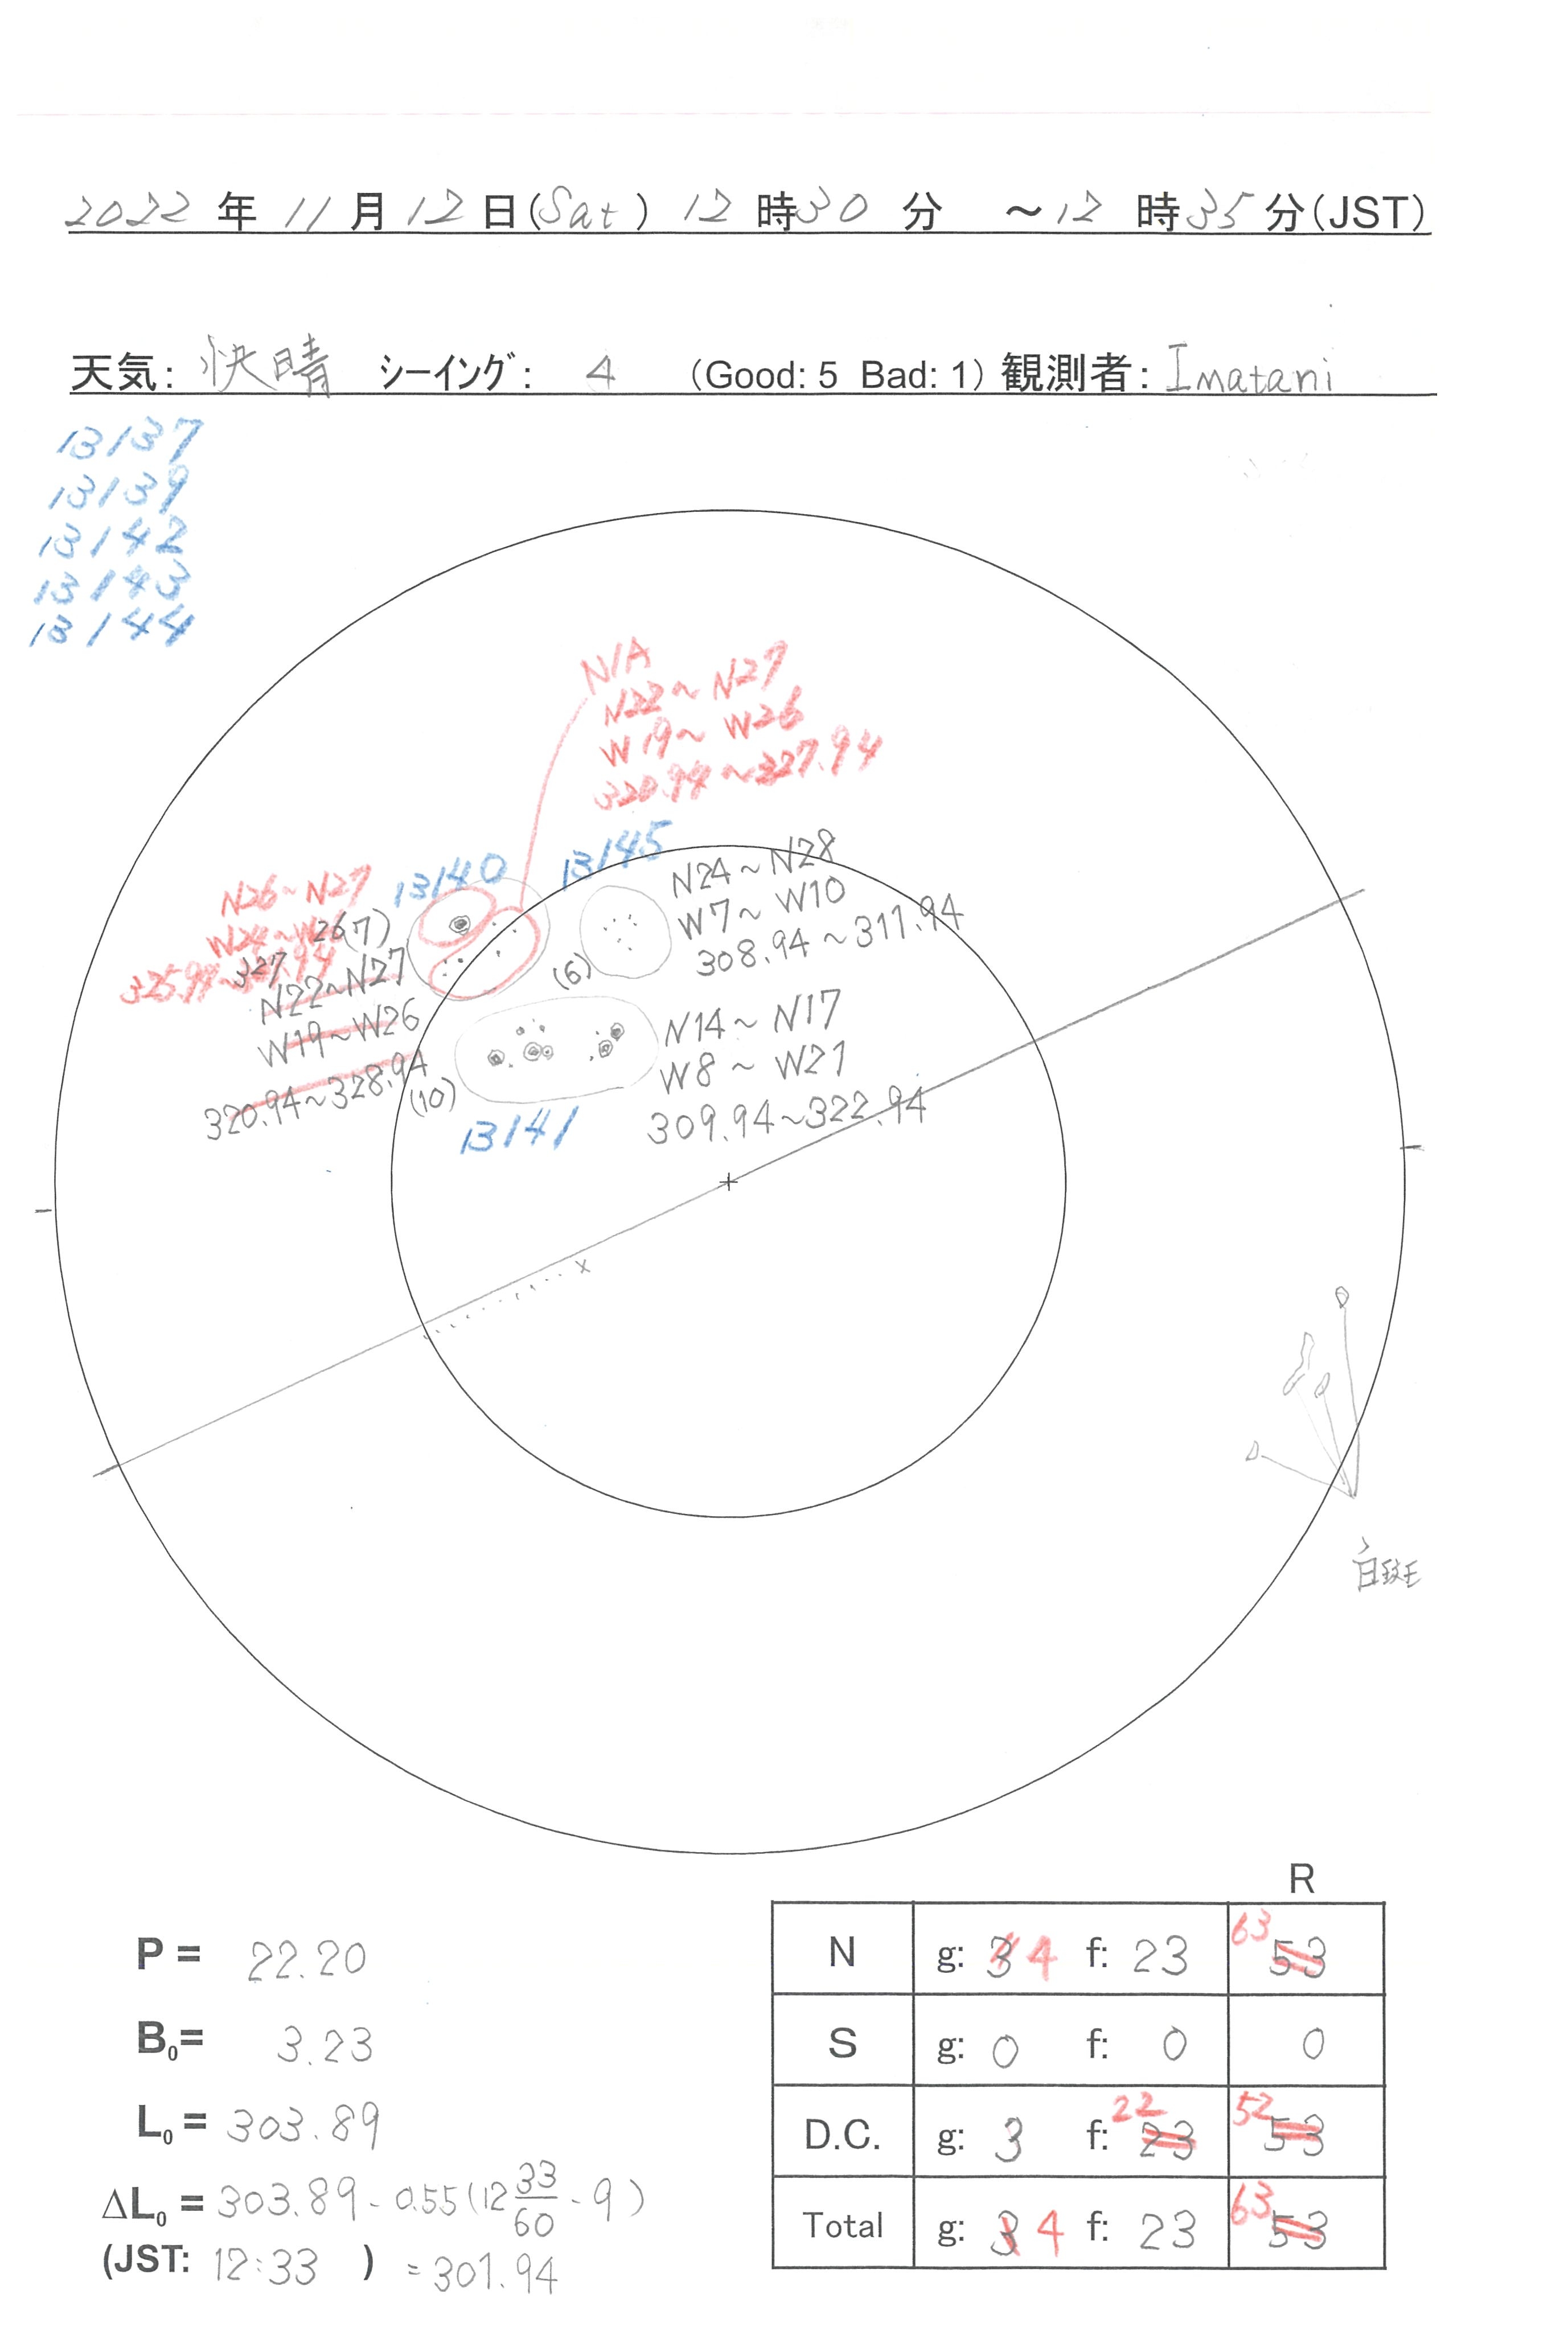 2022 年 11 月 12 日(Sat) 12 時 30 分 ～12 時 35 分(JST)
天気: 快晴 シーイング: 4 (Good: 5 Bad: 1) 観測者: Imatani
13137
13139
13142
13143
13144
N/A
N22～N27
W19～W26
320.94～327.94
13140
13145
N24～N28
W7～W10
308.94～311.94
(6)
N26～N27
26(7)
327
N22～N27
W19～W26
320.94～328.94
(10)
N14～N17
W8～W21
309.94～322.94
13141
x
白斑
P = 22.20
B0= 3.23
L0 = 303.89
ΔL0 = 303.89 - 0.55(12 33/60 - 9)
(JST: 12:33 ) = 301.94
R
N g: 3 4 f: 23 63 53
S g: 0 f: 0 0
D.C. g: 3 f: 22 23 52 53
Total g: 3 4 f: 23 63 53